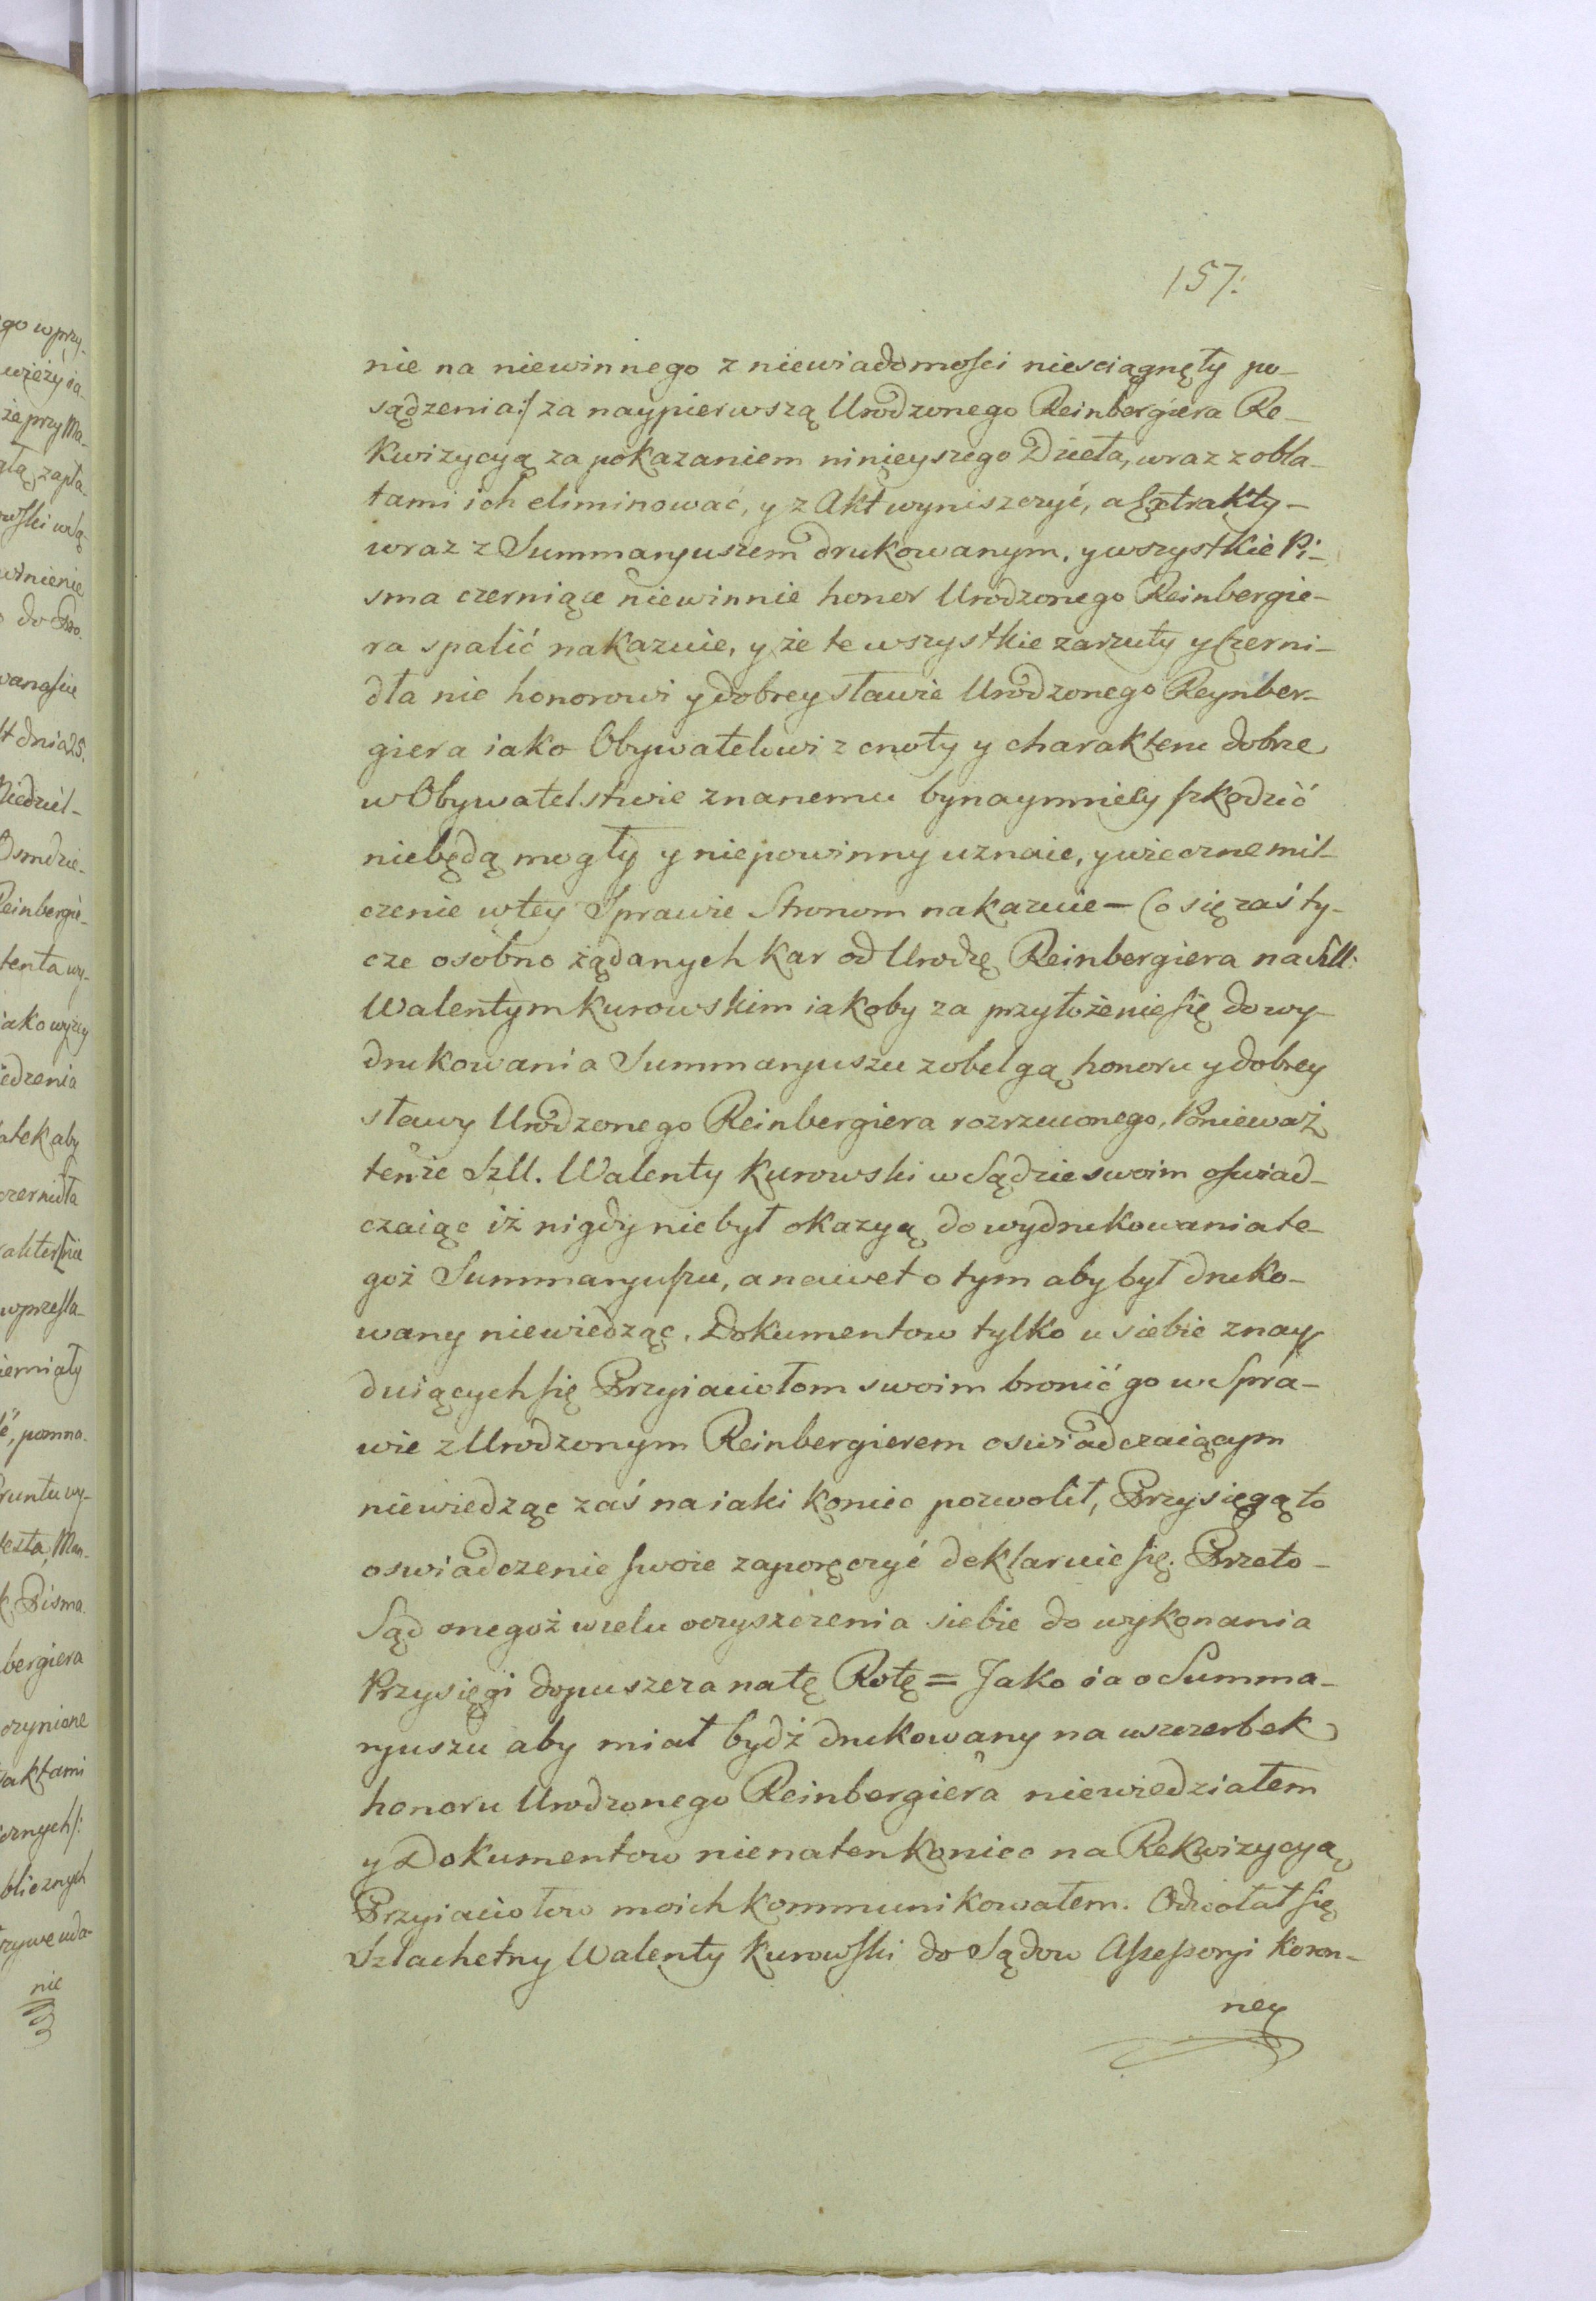 157.
nie na niewinnego z niewiadomości nieściągnęły po-
sądzenia:/ za naypierwszą Urodzonego Reinbergiera Re-
kwizycyą za pokazaniem ninieyszego Dzieła, wraz z obla-
tami ich eliminować, y z Akt wyniszczyć, a Extrakty-
wraz z Summaryuszem drukowanym, y wszystkie Pi-
sma czerniące niewinnie honor Urodzonego Reinbergie-
ra spalić nakazuie, y że te wszystkie zarzuty y Czerni-
dła nie honorowi y dobrey sławie Urodzonego Reynber-
giera iako Obywatelowi z cnoty y charakteru dobrze
w Obywatelstwie znanemu bynaymniey szkodzić
niebędą mogły y niepowinny uznaie, y wieczne mil-
czenie w tey Sprawie Stronom nakazuie – Co się zaś ty-
cze osobno żądanych kar od Urodzę Reinbergiera na Szll:
Walentym Kurowskim iakoby za przyłożenie się do wy-
drukowania Summaryuszu z obelgą honoru y dobrey
sławy Urodzonego Reinbergiera rozrzuconego, Ponieważ
tenże Szll. Walenty Kurowski w Sądzie swoim oświad-
czaiąc iż nigdy niebył okazyą do wydrukowania te-
goż Summaryuszu, a nawet o tym aby był druko-
wany niewiedząc. Dokumentow tylko u siebie znay
duiących się Przyiaciołom swoim bronić go w Spra-
wie z Urodzonym Reinbergierem oswiadczaiącym
niewiedząc zaś na iaki koniec pozwolił, Przysięgą to
oswiadczenie swoie zaporęczyć deklaruie się. Przeto-
Sąd onegoż w celu oczyszczenia siebie do wykonania
Przysięgi dopuszcza na tę Rotę = Jako ia o Summa-
ryuszu aby miał bydź drukowany na uszczerbek
honoru Urodzonego Reinbergiera niewiedziałem
y Dokumentow nie na ten koniec na Rekwizycyą
Przyiaciołow moich kommunikowałem. Odwołał się
Szlachetny Walenty Kurowski do Sądow Assessoryi Koron-
ney